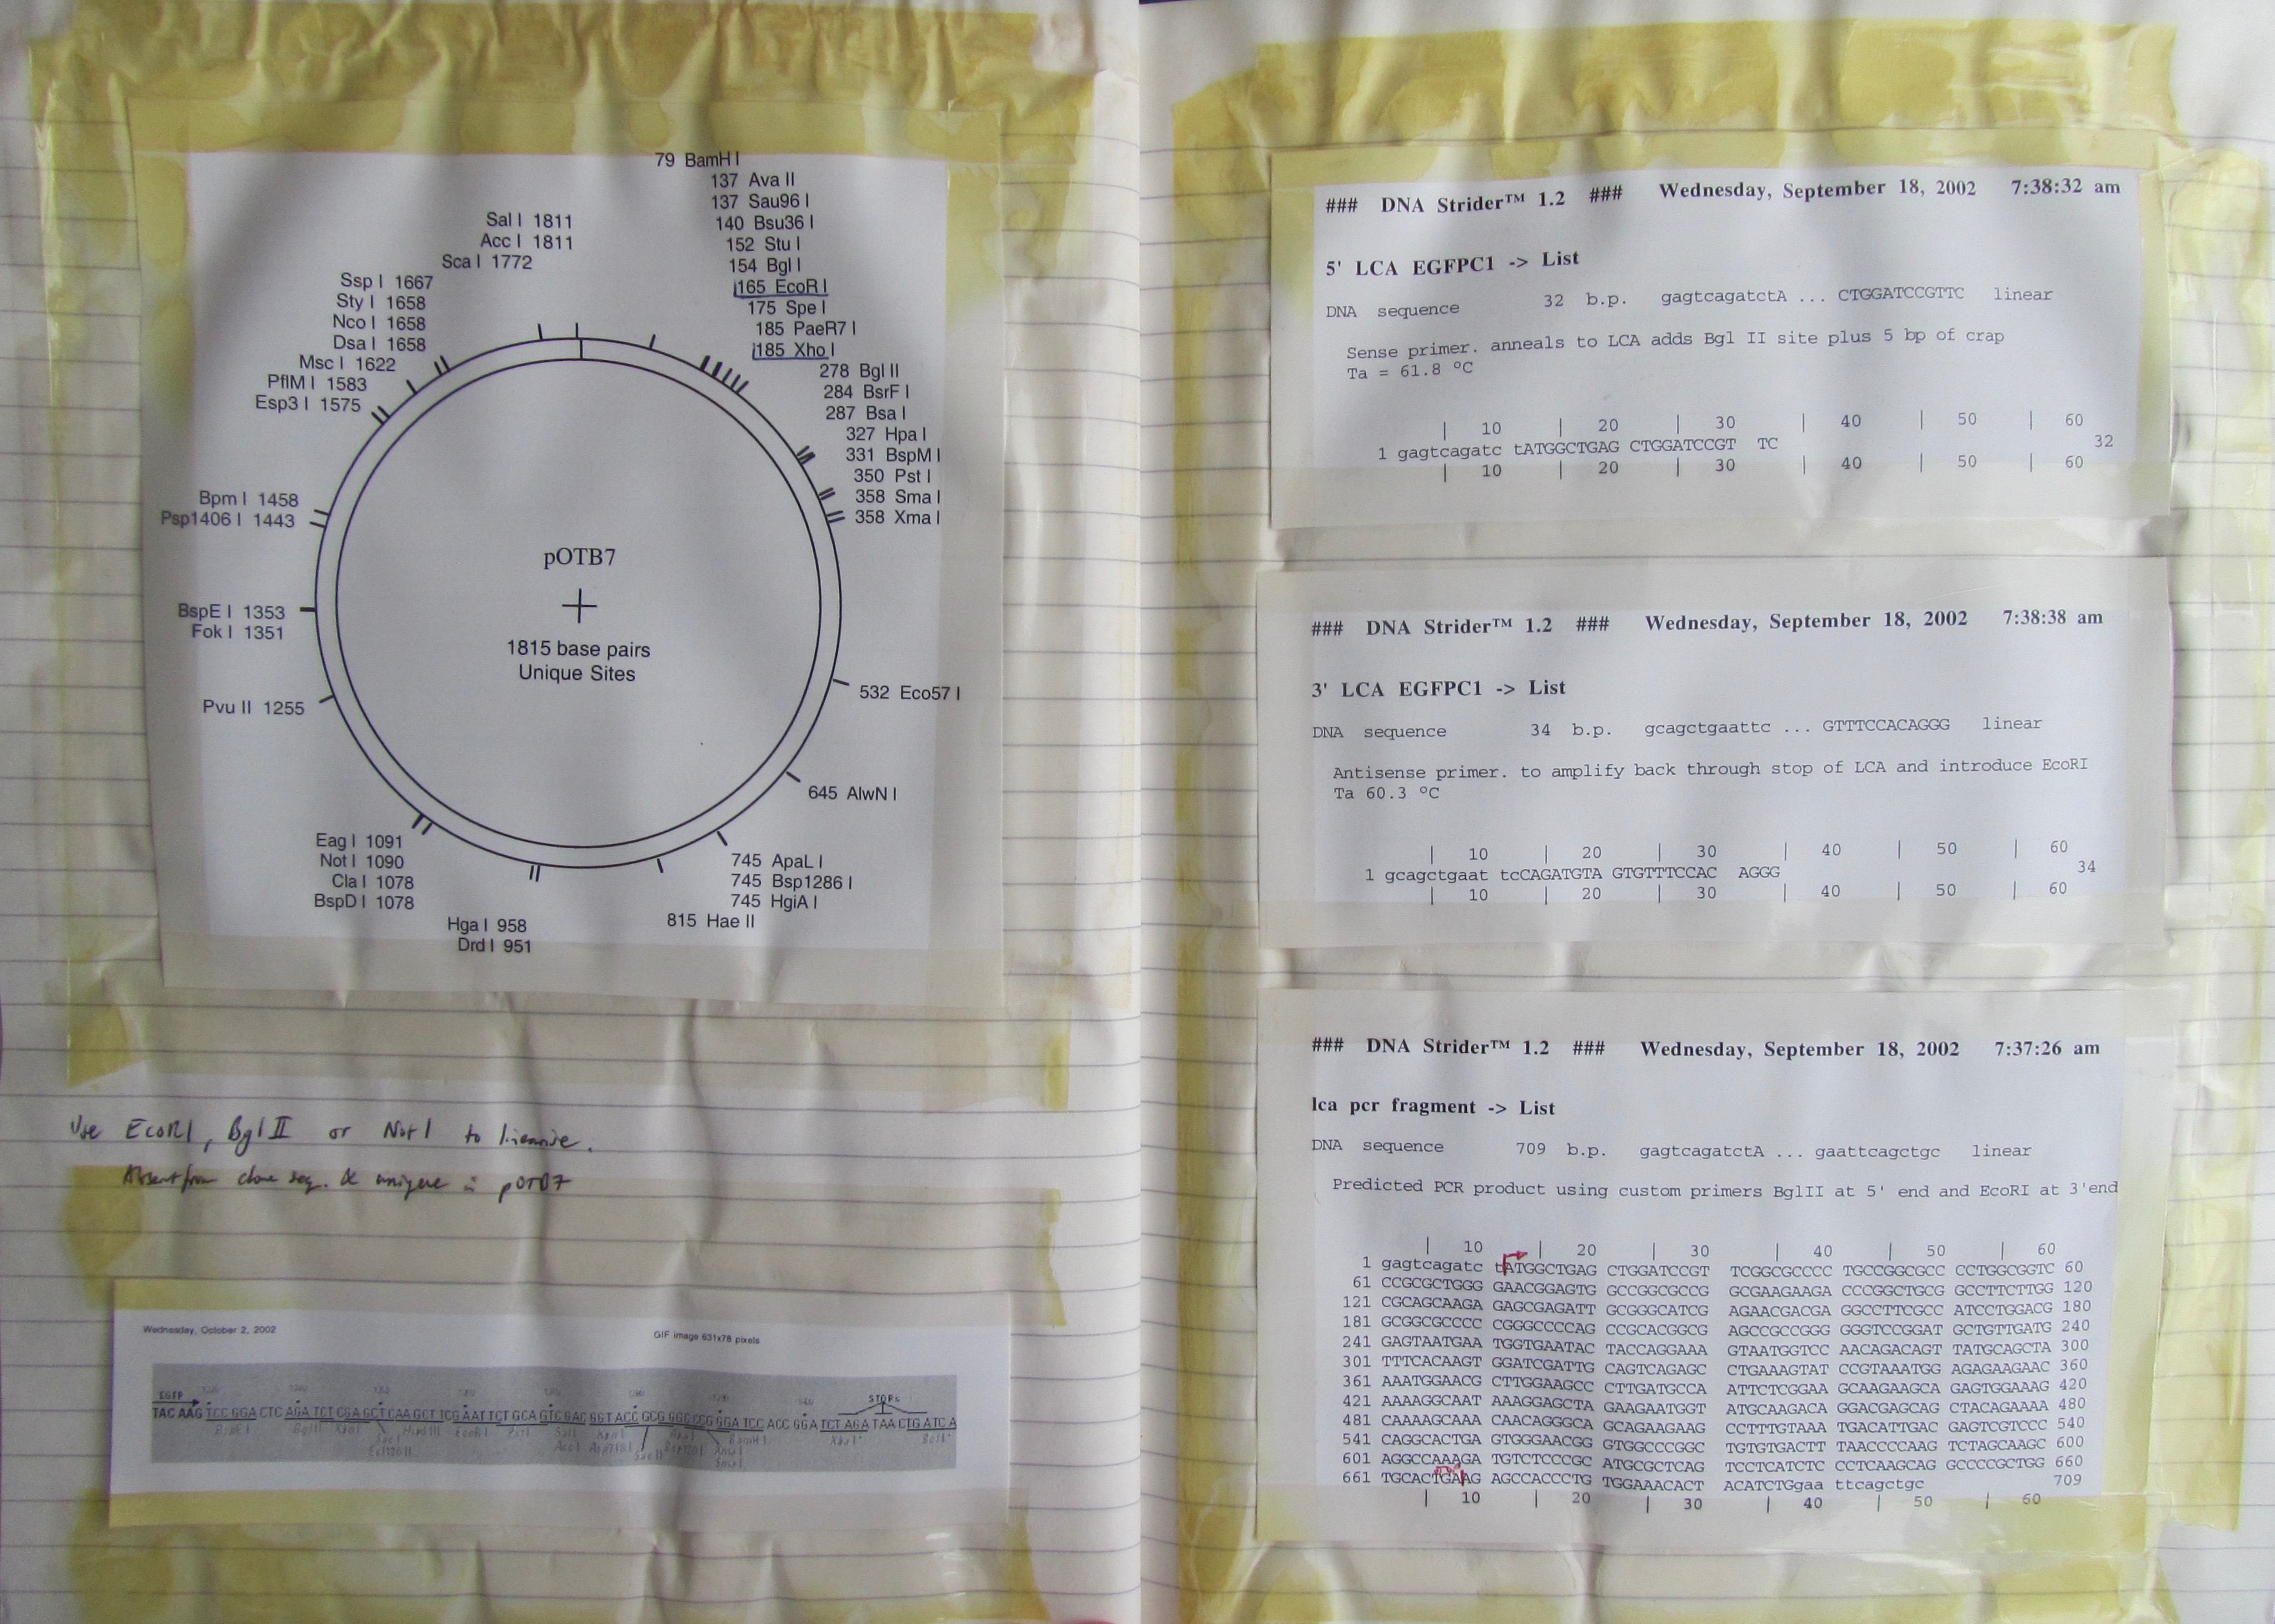 79 BamH I
137 Ava II
137 Sau96 I
140 Bsu36 I
152 Stu I
154 Bgl I
165 EcoR I
175 Spe I
185 PaeR7 I
185 Xho I
278 Bgl II
284 BsrF I
287 Bsa I
327 Hpa I
331 BspM I
350 Pst I
358 Sma I
358 Xma I
Sal I 1811
Acc I 1811
Sca I 1772
Ssp I 1667
Sty I 1658
Nco I 1658
Dsa I 1658
Msc I 1622
PflM I 1583
Esp3 I 1575
Bpm I 1458
Psp1406 I 1443
BspE I 1353
Fok I 1351
Pvu II 1255
pOTB7
1815 base pairs
Unique Sites
532 Eco57 I
645 AlwN I
745 ApaL I
745 Bsp1286 I
745 HgiA I
815 Hae II
Eag I 1091
Not I 1090
Cla I 1078
BspD I 1078
Hga I 958
Drd I 951
Use EcoRI, Bgl II or Not I to linearise.
Absent from clone seq. & unique in pOTB7
Wednesday, October 2, 2002
GIF image 631x78 pixels
EGFP
STOPs
TAC AAG TCC GGA CTC AGA TCT CGA GCT CAA GCT TCG AAT TCT GCA GTC GAC GGT ACC GCG GGC CCG GGA TCC ACC GGA TCT AGA TAA CTG ATC A
BspE I Bgl II Xho I Hind III EcoR I Pst I Sal I Kpn I Apa I BamH I Xba I Bcl I
Sac I Acc I Asp718 I Bsp120 I Xma I
Ecl136 II Sac II Sma I
### DNA Strider™ 1.2 ### Wednesday, September 18, 2002 7:38:32 am
5' LCA EGFPC1 -> List
DNA sequence 32 b.p. gagtcagatctA ... CTGGATCCGTTC linear
Sense primer. anneals to LCA adds Bgl II site plus 5 bp of crap
Ta = 61.8 ºC
| 10 | 20 | 30 | 40 | 50 | 60
1 gagtcagatc tATGGCTGAG CTGGATCCGT TC 32
| 10 | 20 | 30 | 40 | 50 | 60
### DNA Strider™ 1.2 ### Wednesday, September 18, 2002 7:38:38 am
3' LCA EGFPC1 -> List
DNA sequence 34 b.p. gcagctgaattc ... GTTTCCACAGGG linear
Antisense primer. to amplify back through stop of LCA and introduce EcoRI
Ta 60.3 ºC
| 10 | 20 | 30 | 40 | 50 | 60
1 gcagctgaat tcCAGATGTA GTGTTTCCAC AGGG 34
| 10 | 20 | 30 | 40 | 50 | 60
### DNA Strider™ 1.2 ### Wednesday, September 18, 2002 7:37:26 am
lca pcr fragment -> List
DNA sequence 709 b.p. gagtcagatctA ... gaattcagctgc linear
Predicted PCR product using custom primers BglII at 5' end and EcoRI at 3'end
| 10 | 20 | 30 | 40 | 50 | 60
1 gagtcagatc tATGGCTGAG CTGGATCCGT TCGGCGCCCC TGCCGGCGCC CCTGGCGGTC 60
61 CCGCGCTGGG GAACGGAGTG GCCGGCGCCG GCGAAGAAGA CCCGGCTGCG GCCTTCTTGG 120
121 CGCAGCAAGA GAGCGAGATT GCGGGCATCG AGAACGACGA GGCCTTCGCC ATCCTGGACG 180
181 GCGGCGCCCC CGGGCCCCAG CCGCACGGCG AGCCGCCGGG GGGTCCGGAT GCTGTTGATG 240
241 GAGTAATGAA TGGTGAATAC TACCAGGAAA GTAATGGTCC AACAGACAGT TATGCAGCTA 300
301 TTTCACAAGT GGATCGATTG CAGTCAGAGC CTGAAAGTAT CCGTAAATGG AGAGAAGAAC 360
361 AAATGGAACG CTTGGAAGCC CTTGATGCCA ATTCTCGGAA GCAAGAAGCA GAGTGGAAAG 420
421 AAAAGGCAAT AAAGGAGCTA GAAGAATGGT ATGCAAGACA GGACGAGCAG CTACAGAAAA 480
481 CAAAAGCAAA CAACAGGGCA GCAGAAGAAG CCTTTGTAAA TGACATTGAC GAGTCGTCCC 540
541 CAGGCACTGA GTGGGAACGG GTGGCCCGGC TGTGTGACTT TAACCCCAAG TCTAGCAAGC 600
601 AGGCCAAAGA TGTCTCCCGC ATGCGCTCAG TCCTCATCTC CCTCAAGCAG GCCCCGCTGG 660
661 TGCACTGAAG AGCCACCCTG TGGAAACACT ACATCTGgaa ttcagctgc 709
| 10 | 20 | 30 | 40 | 50 | 60